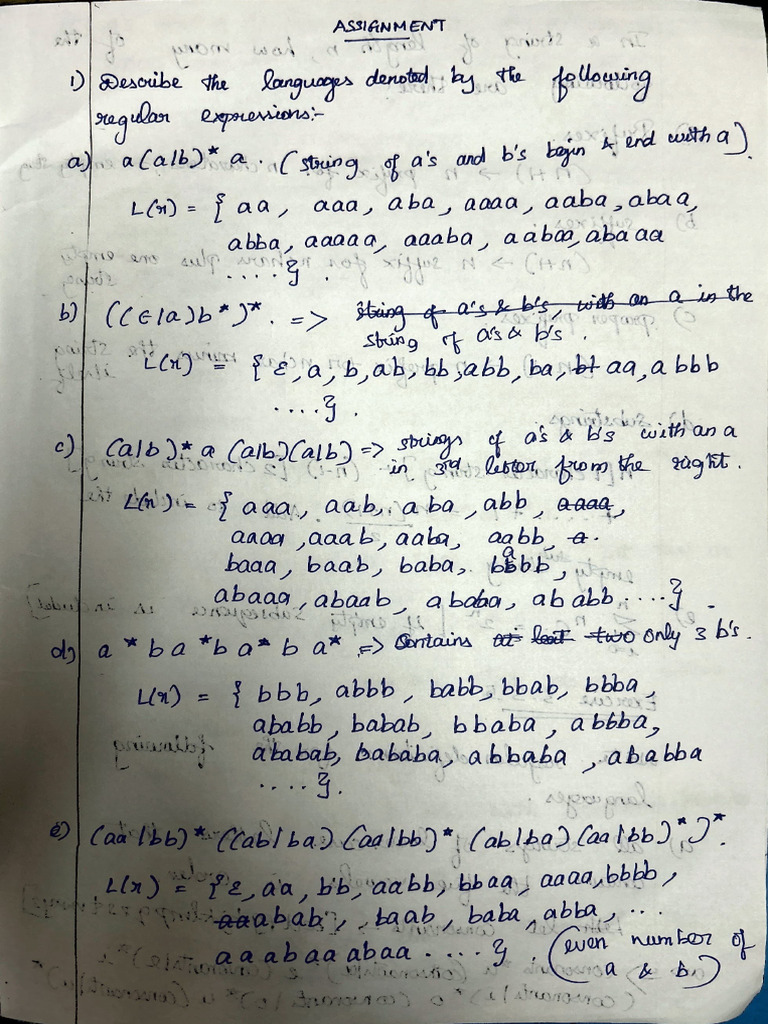 ASSIGNMENT
1) Describe the languages denoted by the following
regular expressions:-
a) a(a|b)* a. (string of a's and b's begin & end with a).
L(r) = { aa, aaa, aba, aaaa, aaba, abaa,
abba, aaaaa, aaaba, aabaa, abaaa
....}.
b) ((∈|a)b*)*. => string of a's & b's, with an a in the
string of a's & b's.
L(r) = { ε, a, b, ab, bb, abb, ba, bt aa, abbb
....}.
c) (a|b)* a (a|b)(a|b) => strings of a's & b's with an a
in 3rd letter from the right.
L(r) = { aaa, aab, aba, abb, aaaa,
aaaa, aaab, aaba, aabb, a.
baaa, baab, baba, babb,
abaaa, abaab, ababa, ababb ....}.
d) a*ba*ba*ba* => Contains at least two only 3 b's.
L(r) = { bbb, abbb, babb, bbab, bbba,
ababb, babab, bbaba, abbba,
ababab, bababa, abbaba, ababba
....}.
e) (aa|bb)* ((ab|ba) (aa|bb)* (ab|ba) (aa|bb)*)*.
L(r) = { ε, aa, bb, aabb, bbaa, aaaa, bbbb,
aa abab, baab, baba, abba, ...
aaabaaabaa ....} (even number of
a & b)